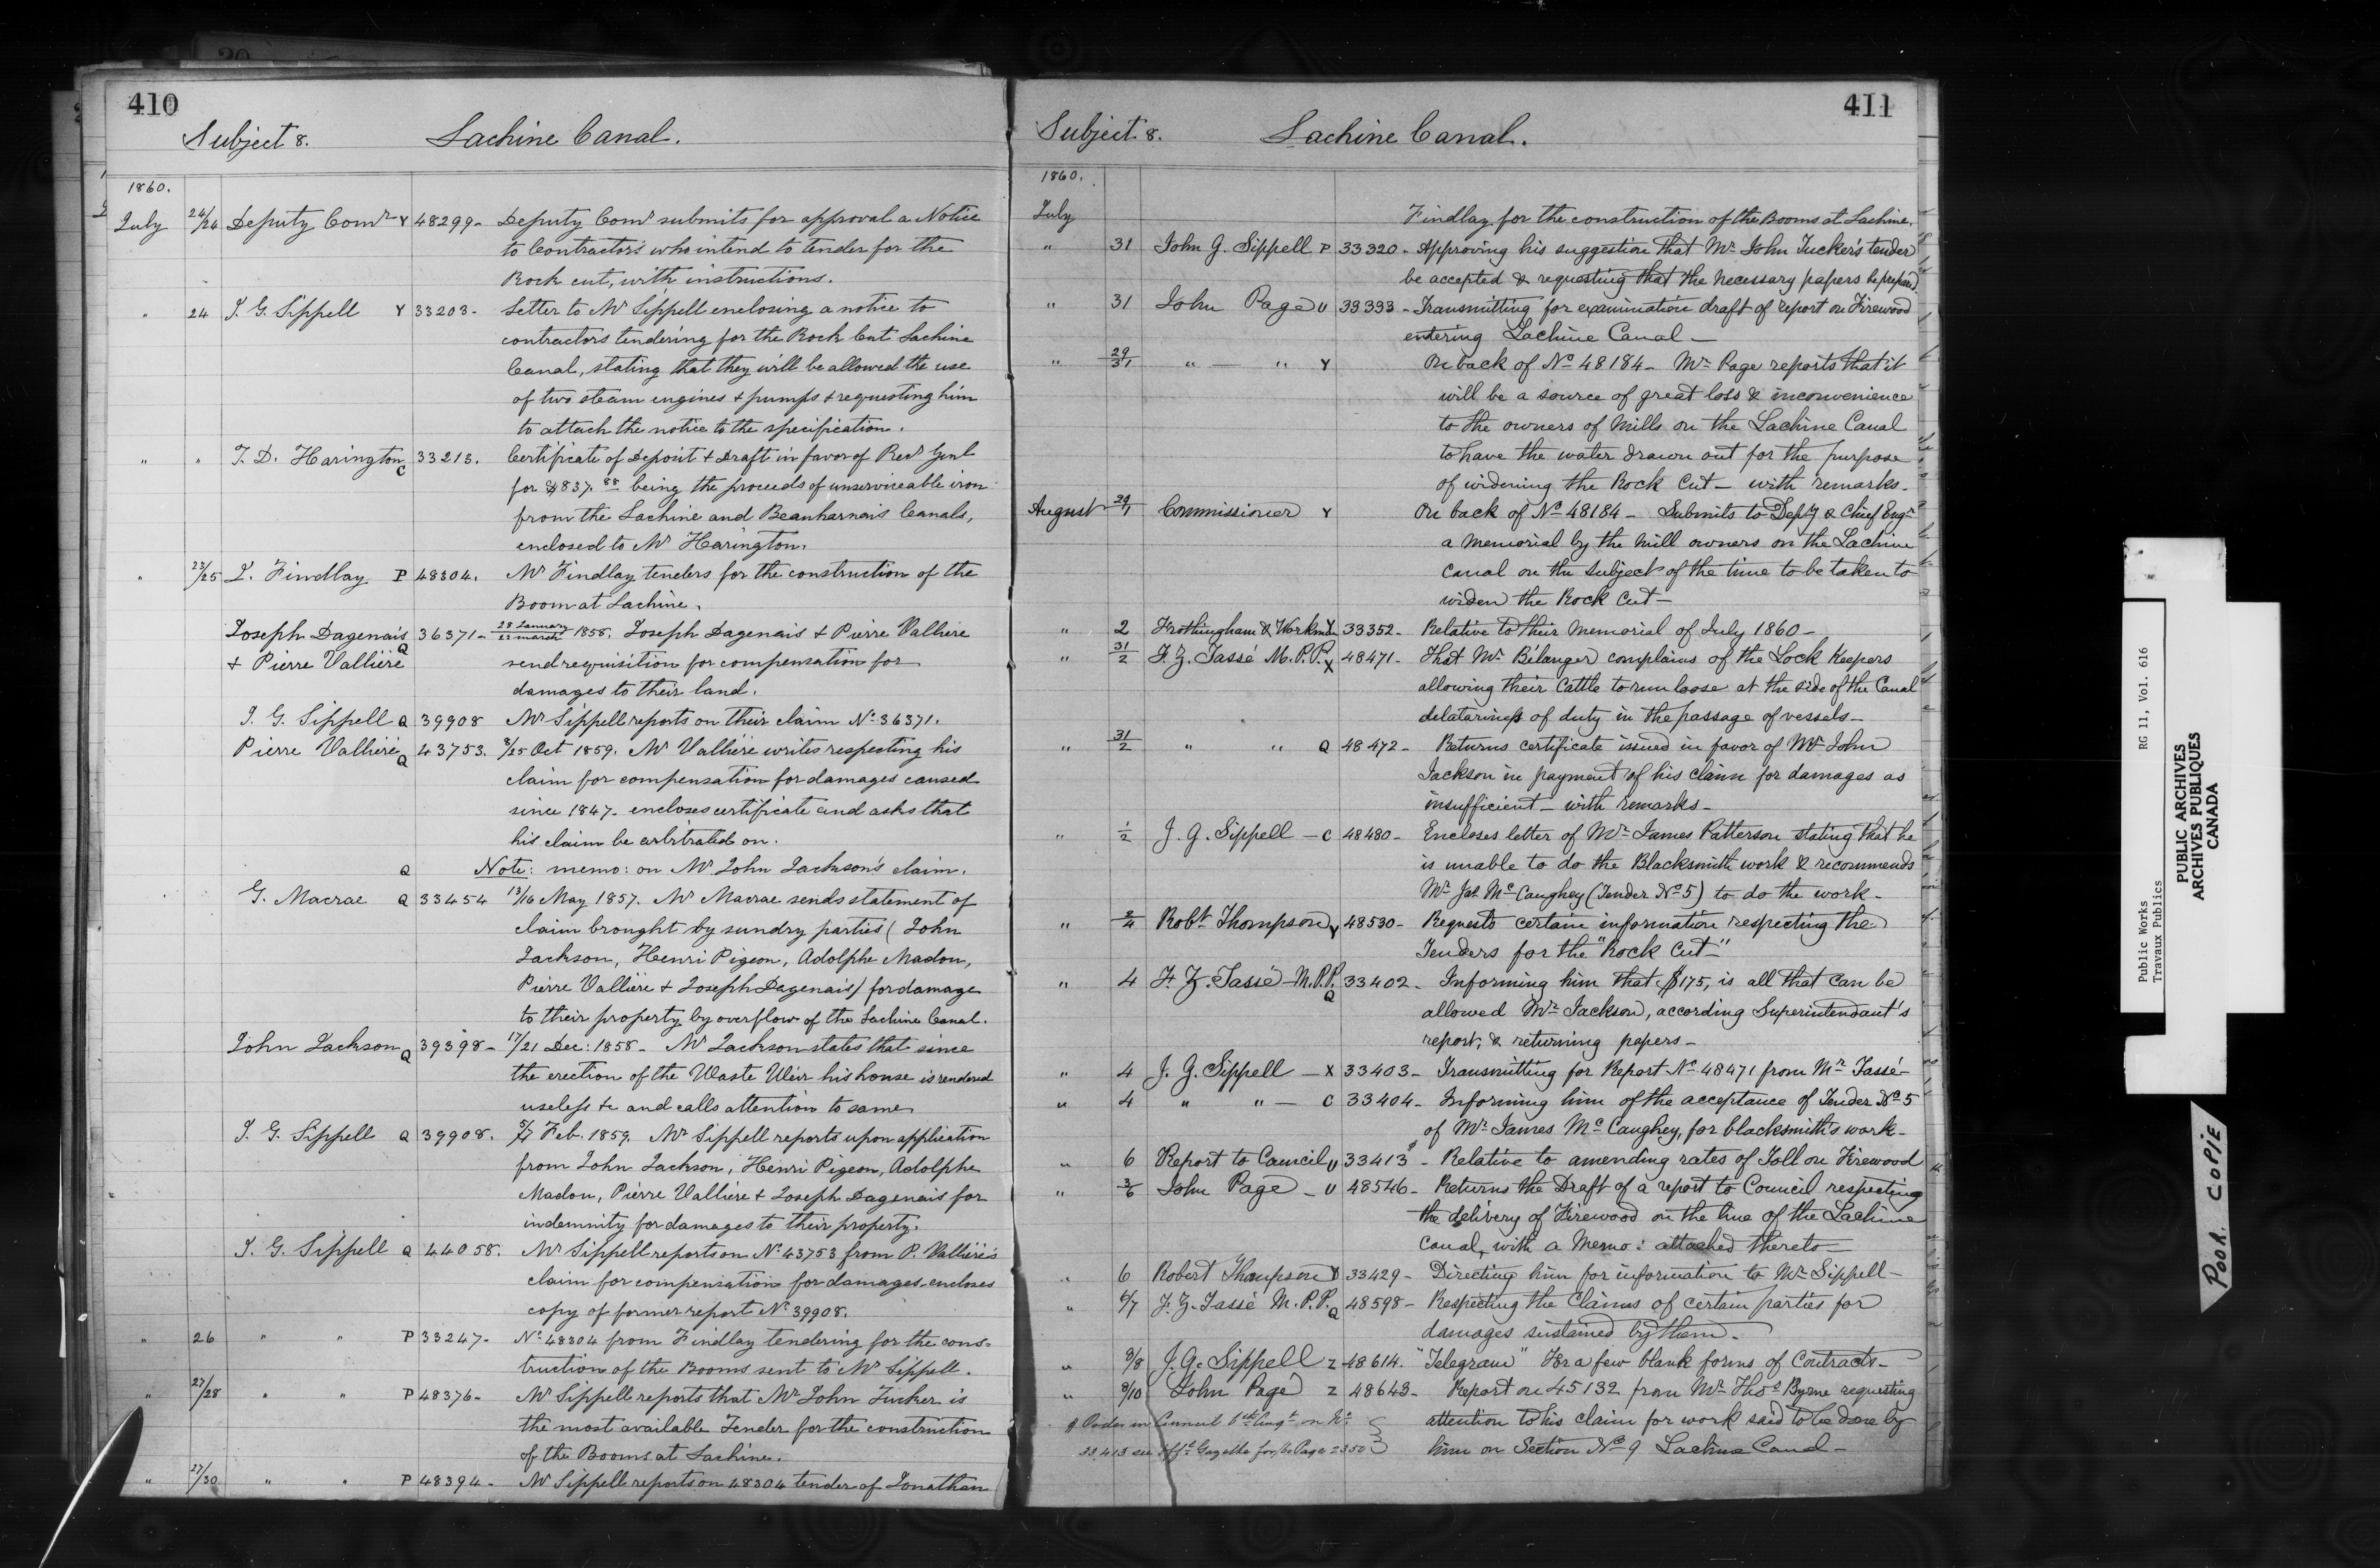 410
Subject 8. Lachine Canal.
1860.
July 24/24 Deputy Comr Y 48299- Deputy Comr submits for approval a Notice
to Contractors who intend to tender for the
Rock cut, with instructions.
" 24 J. G. Sippell Y 33203- Letter to Mr Sippell enclosing a notice to
contractors tendering for the Rock Cut Lachine
Canal, stating that they will be allowed the use
of two steam engines + pumps + requesting him
to attach the notice to the specification.
" " T. D. Harington C 33213. Certificate of Deposit + Draft in favor of Recr Genl
for $4837.88 being the proceeds of unserviceable iron
from the Lachine and Beauharnais Canals,
enclosed to Mr Harington.
" 23/25 L. Findlay P 48304. Mr Findlay tenders for the construction of the
Boom at Lachine.
Joseph Dagenais Q 36371- 28 January/23 march 1858. Joseph Dagenais + Pierre Valliere
+ Pierre Vallière send requisition for compensation for
damages to their land.
J. G. Sippell Q 39908 Mr Sippell reports on their claim No 36371.
Pierre Vallière Q 43753. 8/25 Oct 1859. Mr Vallière writes respecting his
claim for compensation for damages caused
since 1847- encloses certificate and asks that
his claim be arbitrated on.
Q Note: memo: on Mr John Jackson's claim.
G. Macrae Q 33454 13/16 May 1857. Mr Macrae sends statement of
claim brought by sundry parties (John
Jackson, Henri Pigeon, Adolphe Madon,
Pierre Vallière + Joseph Dagenais) for damage
to their property by overflow of the Lachine Canal.
John Jackson Q 39398- 17/21 Dec: 1858- Mr Jackson states that since
the erection of the Waste Weir his house is rendered
useless &c and calls attention to same
J. G. Sippell Q 39908. 5/7 Feb. 1859. Mr Sippell reports upon application
from John Jackson, Henri Pigeon, Adolphe
Madon, Pierre Vallière + Joseph Dagenais for
indemnity for damages to their property.
J. G. Sippell Q 44058. Mr Sippell reports on No 43753 from P. Vallière's
claim for compensation for damages-encloses
copy of former report No 39908.
" 26 " " P 33247- No 48304 from Findlay tendering for the cons-
truction of the Booms sent to Mr Sippell.
" 27/28 " " P 48376- Mr Sippell reports that Mr John Tucker is
the most available Tender for the construction
of the Booms at Lachine.
" 27/30 " " P 48394- Mr Sippell reports on 48304 tender of Jonathan
411
Subject 8. Lachine Canal.
1860.
July Findlay for the construction of the Booms at Lachine.
" 31 John G. Sippell P 33320- Approving his suggestion that Mr John Tucker's tender
be accepted & requesting that the necessary papers be prepared.
" 31 John Page U 33333- Transmitting for examination draft of report on Firewood
entering Lachine Canal-
" 29/31 " - " Y On back of No 48184- Mr Page reports that it
will be a source of great loss & inconvenience
to the owners of Mills on the Lachine Canal
to have the water drawn out for the purpose
of widening the Rock Cut- with remarks.
August 29/1 Commissioner Y On back of No 48184- Submits to Depty & Chief Engr
a memorial by the mill owners on the Lachine
Canal on the subject of the time to be taken to
widen the Rock Cut-
" 2 Frothingham & Workman Y 33352- Relative to their Memorial of July 1860-
" 31/2 F. Z. Tassé M.P.P. X 48471- That Mr Bélanger complains of the Lock Keepers
allowing their Cattle to run loose at the side of the Canal
delatoriness of duty in the passage of vessels-
" 31/2 " " Q 48472- Returns certificate issued in favor of Mr John
Jackson in payment of his claim for damages as
insufficient- with remarks-
" 1/2 J. G. Sippell - C 48480- Encloses letter of Mr James Patterson stating that he
is unable to do the Blacksmith work & recommends
Mr Jas McCaughey (Tender No 5) to do the work-
" 2/4 Robt Thompson Y 48530- Requests certain information respecting the
Tenders for the "Rock Cut"
" 4 F. Z. Tassé M.P.P. Q 33402- Informing him that $175, is all that can be
allowed Mr Jackson, according Superintendant's
report, & returning papers-
" 4 J. G. Sippell - X 33403- Transmitting for Report No 48471 from Mr Tassé-
" 4 " " - C 33404- Informing him of the acceptance of Tender No 5
of Mr James McCaughey, for blacksmith's work-
" 6 Report to Council U 33413- Relative to amending rates of Toll on Firewood
" 3/6 John Page - U 48546- Returns the Draft of a report to Council respecting
the delivery of Firewood on the line of the Lachine
Canal, with a Memo: attached thereto-
" 6 Robert Thompson Y 33429- Directing him for information to Mr Sippell-
" 6/7 F. Z. Tassé M.P.P. Q 48598- Respecting the Claims of certain parties for
damages sustained by them.
" 8/8 J. G. Sippell Z 48614. "Telegram" For a few blank forms of Contracts-
" 8/10 John Page Z 48643- Report on 45132 from Mr Thos Byrne requesting
attention to his claim for work said to be done by
him on Section No 9 Lachine Canal-
Order in Council Augt on No
33,413 see Gazette Page 2350
Public Works
Travaux Publics
RG 11, Vol. 616
PUBLIC ARCHIVES
ARCHIVES PUBLIQUES
CANADA
POOR COPIE